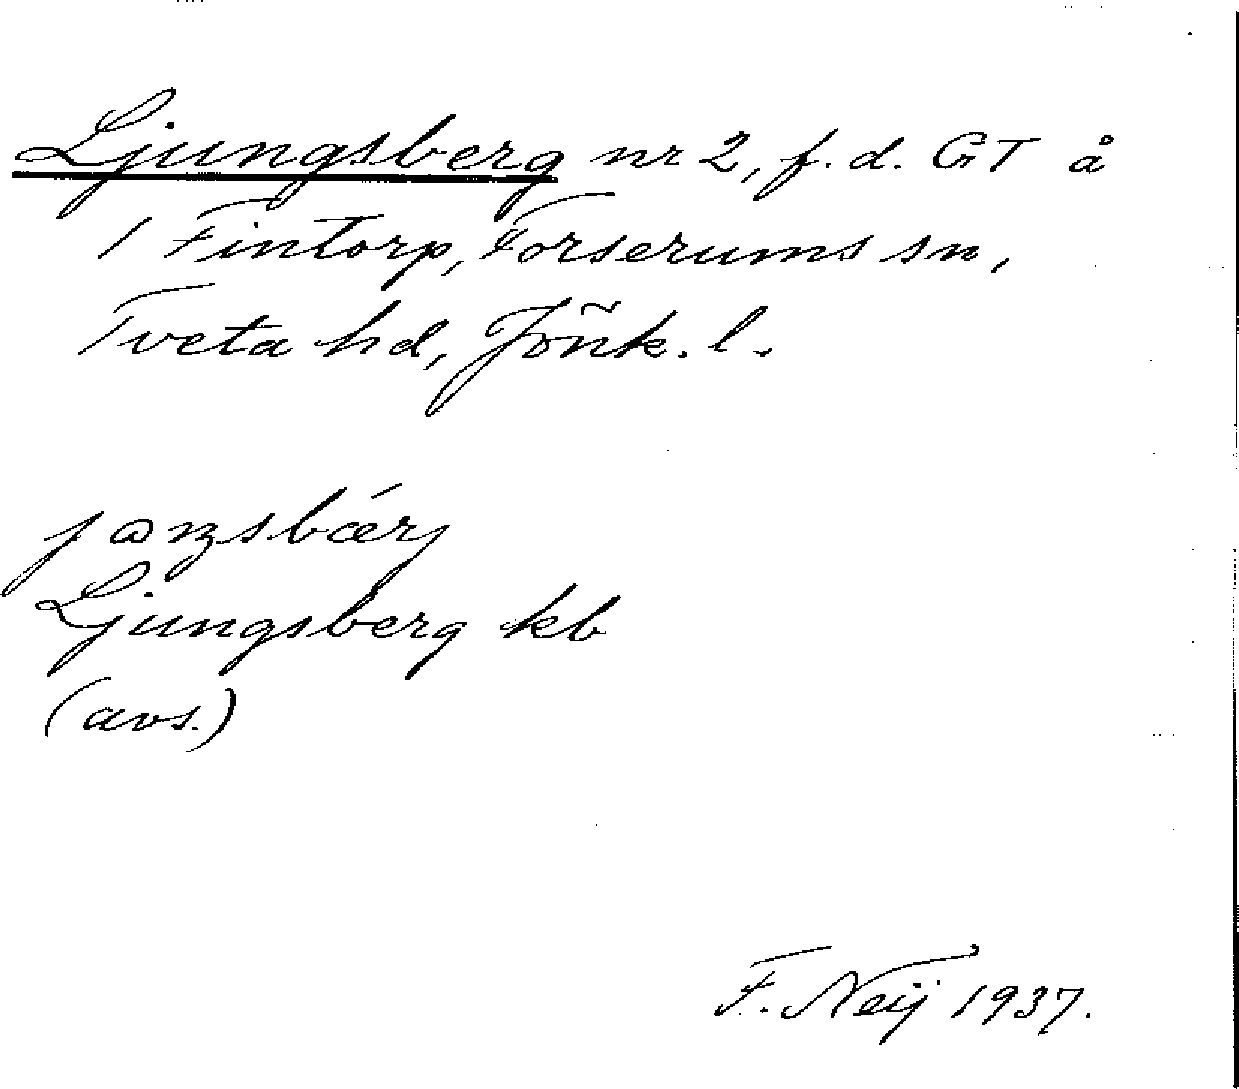 Ljungsberg nr 2, f. d. GT å
1 Fintorp, Forserums sn,
Tveta hd, Jönk. l.
Ljungsberg kb
(avs.)
F. Neij 1937.